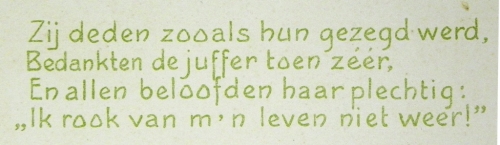 Zij deden zooals hun gezegd werd,
Bedankten de juffer toen zéér,
En allen beloofden haar plechtig:
„Ik rook van m'n leven niet weer!"